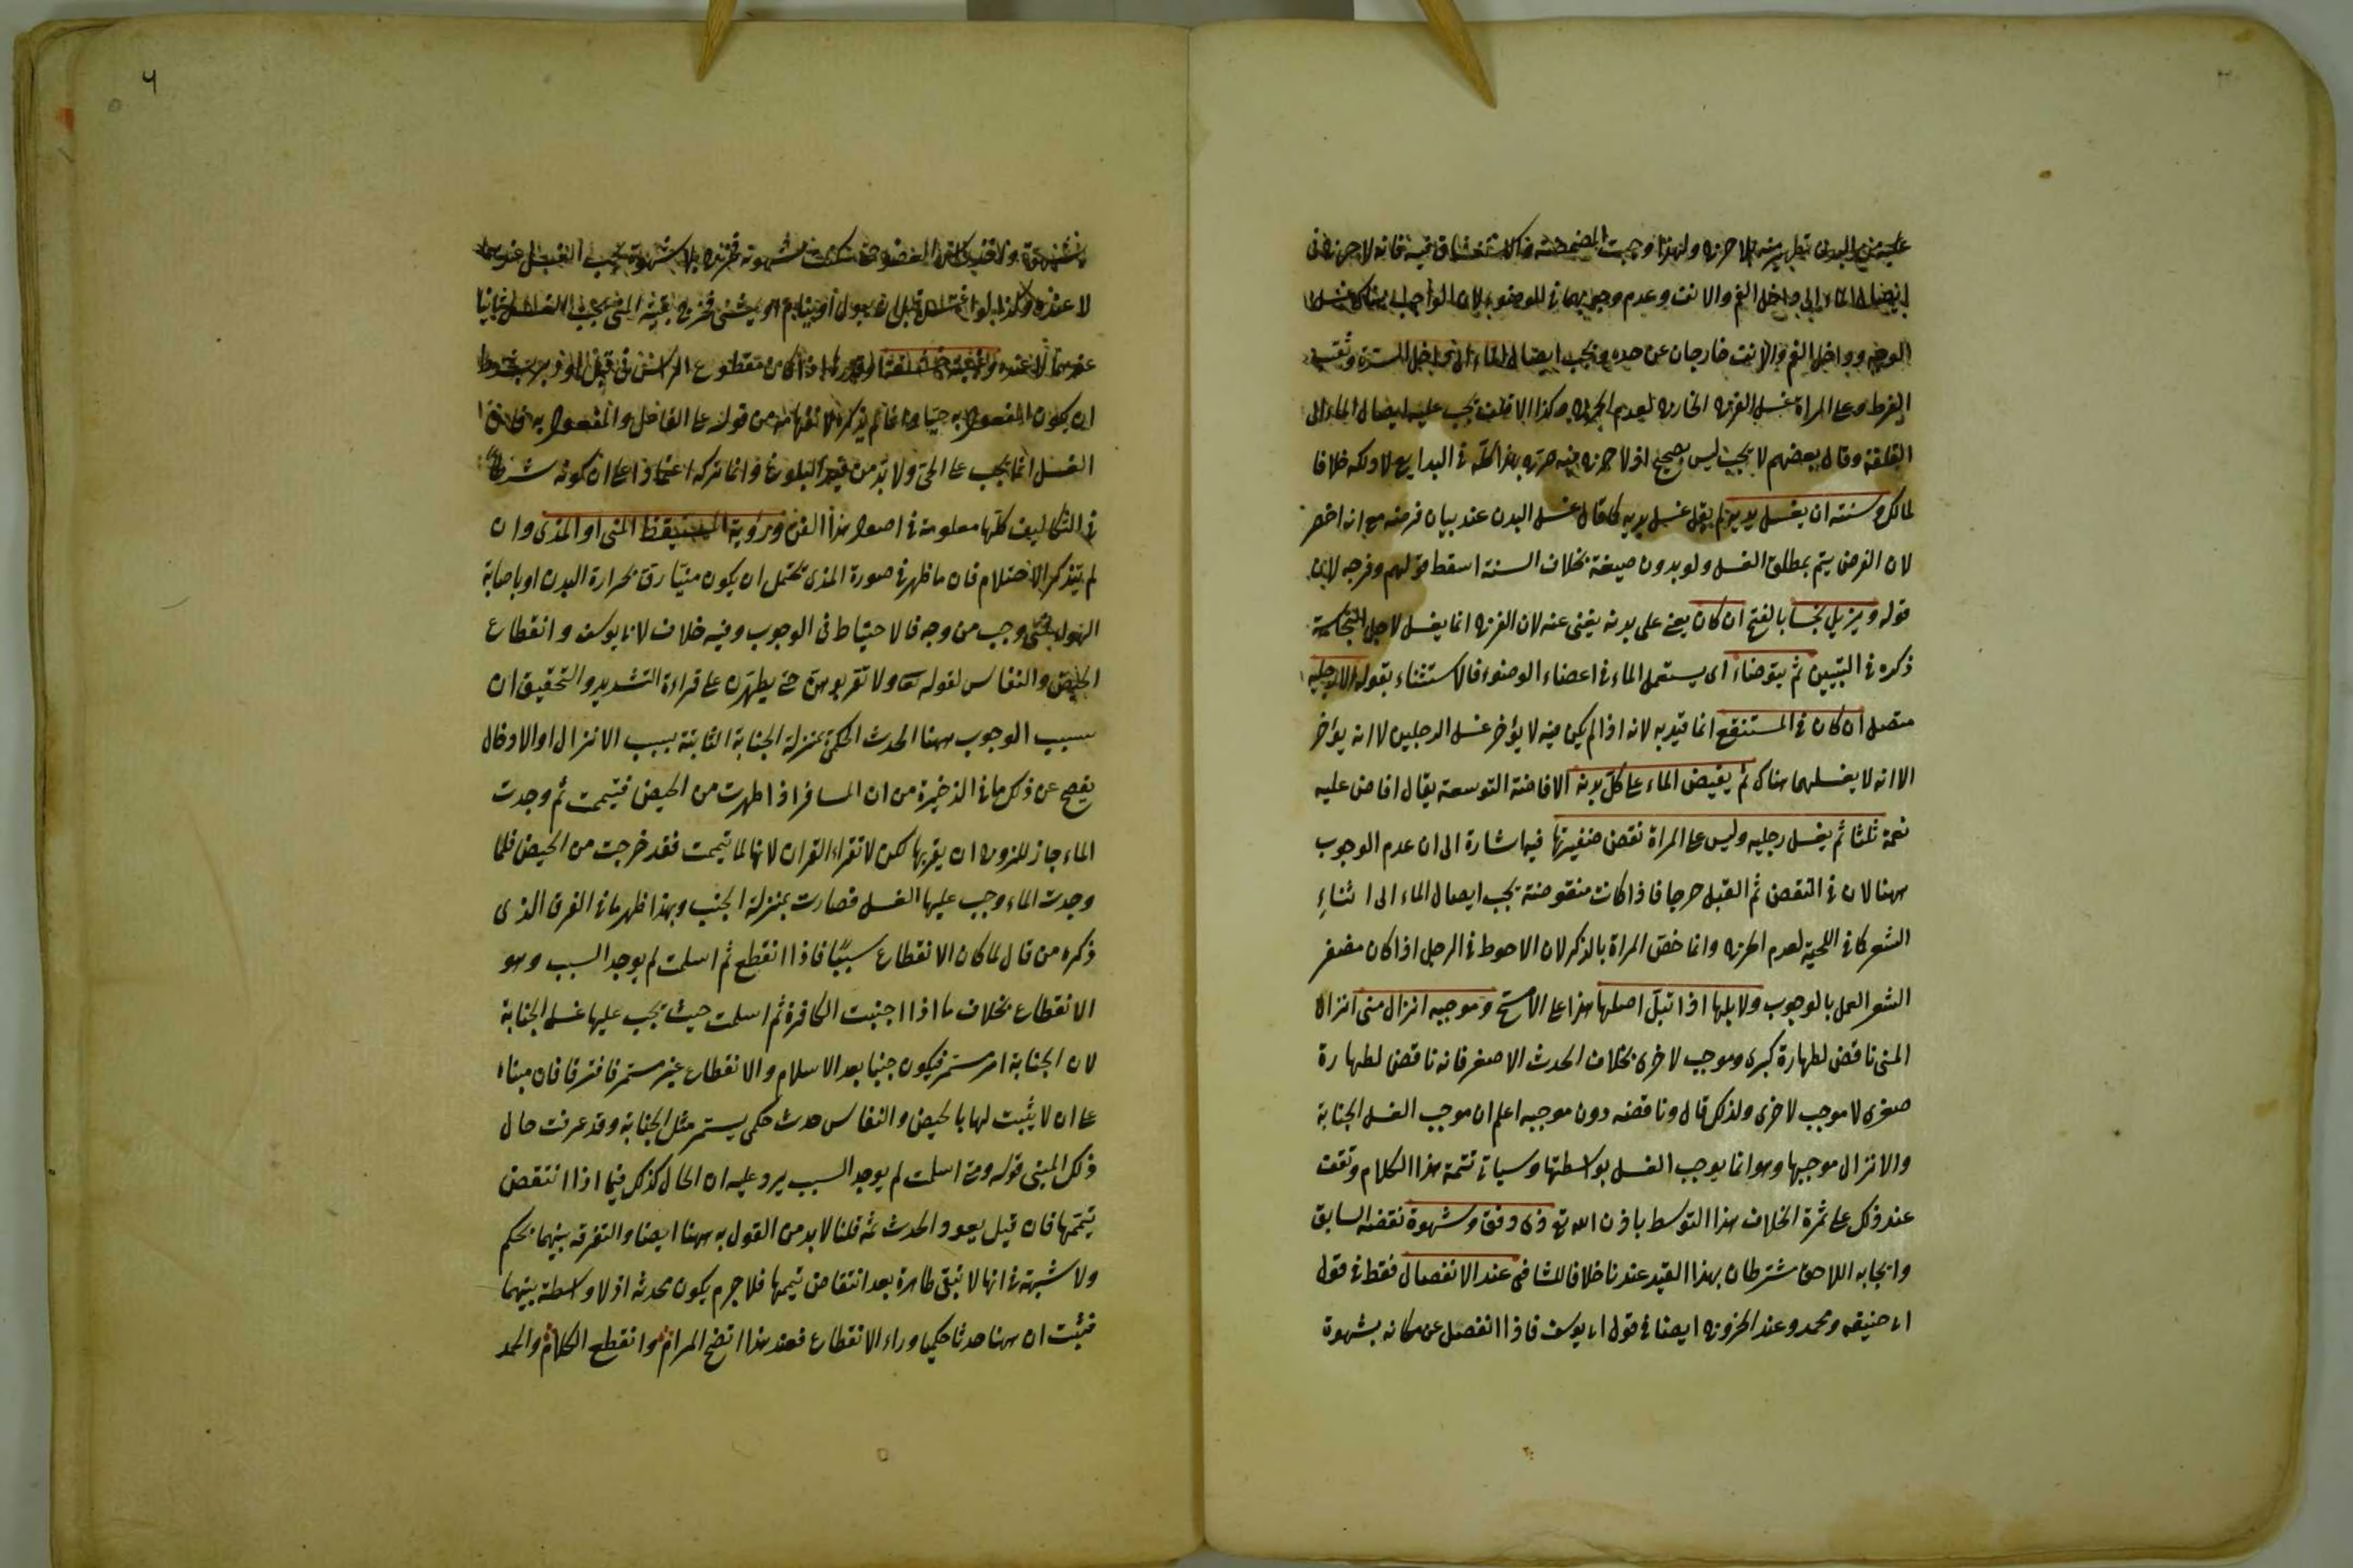 عليه من البدن تطهيره بلا حرج ولهذا وجبت المضمضة والاستنشاق فيه فانه لا حرج في
ايصال الماء الى داخل الفم والانف وعدم وجوبهما في الوضوء لان الواجب هناك غسل
الوجه وداخل الفم والانف خارجان عن حده ويجب ايصال الماء الى داخل السرة وثقب
القرط وعلى المراة غسل الفرج الخارج لعدم الحرج وكذا الاقلف يجب عليه ايصال الماء الى
القلفة وقال بعضهم لا يجب ليس بصحيح اذ لا حرج فيه في البدايع لا دلكه خلافا
لمالك وسنته ان يغسل يديه لم يقل غسل يديه كما قال غسل البدن عند بيان فرضه مع انه اخصر
لان الفرض يتم بمطلق الغسل ولو بدون صيغة بخلاف السنة اسقط قولهم وفرجه لان
قوله ويزيل نجسا بالفتح ان كان يعنى على بدنه يغنى عنه لان الفرج انما يغسل لاجل النجاسة
ذكره في التبيين ثم يتوضاء اى يستعمل الماء في اعضاء الوضوء فالاستثناء بقوله الا رجليه
متصل ان كان في المستنقع انما قيد به لانه اذا لم يكن فيه لا يؤخر غسل الرجلين لا انه يؤخر
الا انه لا يغسلهما هناك ثم يفيض الماء على كل بدنه الافاضة التوسعة يقال افاض عليه
نعمة ثلثا ثم يغسل رجليه وليس على المراة نقض ضفيرتها فيه اشارة الى ان عدم الوجوب
ههنا لان في النقض ثم الفتل حرجا فاذا كانت منقوضة يجب ايصال الماء الى اثناء
الشعر كما في اللحية لعدم الحرج وانما خص المراة بالذكر لان الاحوط في الرجل اذا كان مضفر
الشعر العمل بالوجوب ولا بلها اذا تبل اصلها هذا على الاصح وموجبه انزال منى انزال
المنى ناقض لطهارة كبرى وموجب لاخرى بخلاف الحدث الاصغر فانه ناقض لطهارة
صغرى لا موجب لاخرى ولذلك قال وناقضه دون موجبه اعلم ان موجب الغسل الجنابة
والانزال موجبها وهو انما يوجب الغسل بواسطتها وسياتى تتمة هذا الكلام وتقف
عند ذلك على ثمرة الخلاف هذا التوسط باذن الله تع ذى دفق وشهوة نقضه السابق
وايجابه اللاحق مشترطان بهذا القيد عندنا خلافا للشافعى عند الانفصال فقط في قول
ابى حنيفه ومحمد وعند الخروج ايضا في قول ابى يوسف فاذا انفصل عن مكانه بشهوة
حتى سكنت شهوته فخرج بلا شهوة يجب الغسل عندهما
لا عنده وكذا لو اغتسل قبل ان يبول او ينام او يمشى فخرج بقية المنى يجب الغسل ثانيا
عندهما لا عنده وغيبة حشفة او قدرها اذا كان مقطوع الراس في قبل او دبر بشرط
ان يكون المفعول به حيا وانما لم يذكره لانفهامه من قوله على الفاعل والمفعول به فان
الغسل انما يجب على الحى ولا بد من قيد البلوغ وانما تركه اعتمادا على ان كونه شرطا
في التكاليف كلها معلومة في اصول هذا الفن ورؤية المستيقظ المنى او المذى وان
لم يتذكر الاحتلام فان ما ظهر في صورة المذى يحتمل ان يكون منيا رق بحرارة البدن او باصابة
الهواء فمتى وجب من وجه فالاحتياط في الوجوب وفيه خلاف لابى يوسف وانقطاع
الحيض والنفاس لقوله تعا ولا تقربوهن حتى يطهرن على قراءة التشديد والتحقيق ان
سبب الوجوب ههنا الحدث الحكمى بمنزلة الجنابة الثابتة بسبب الانزال او الادخال
يفصح عن ذلك ما في الذخيرة من ان المسافرة اذا طهرت من الحيض فتيممت ثم وجدت
الماء جاز للزوج ان يقربها لكن لا تقراء القران لانها لما تيممت فقد خرجت من الحيض فلما
وجدت الماء وجب عليها الغسل فصارت بمنزلة الجنب وبهذا ظهر ما في الفرق الذى
ذكره من قال لما كان الانقطاع سببا فاذا انقطع ثم اسلمت لم يوجد السبب وهو
الانقطاع بخلاف ما اذا اجنبت الكافرة ثم اسلمت حيث يجب عليها غسل الجنابة
لان الجنابة امر مستمر فيكون جنبا بعد الاسلام والانقطاع غير مستمر فافترقا فان مبناه
على ان لا يثبت لها بالحيض والنفاس حدث حكمى يستمر مثل الجنابة وقد عرفت حال
ذلك المبنى قوله ومتى اسلمت لم يوجد السبب يرد عليه ان الحال كذلك فيما اذا انتقض
تيممها فان قيل يعود الحدث ثمه قلنا لا بد من القول به ههنا ايضا والتفرقه بينهما تحكم
ولا شبهة في انها لا تبقى طاهرة بعد انتقاض تيممها فلا جرم يكون محدثه اذ لا واسطة بينهما
فثبت ان ههنا حدثا حكميا وراء الانقطاع فعند هذا اتضح المرام وانقطع الكلام والحمد